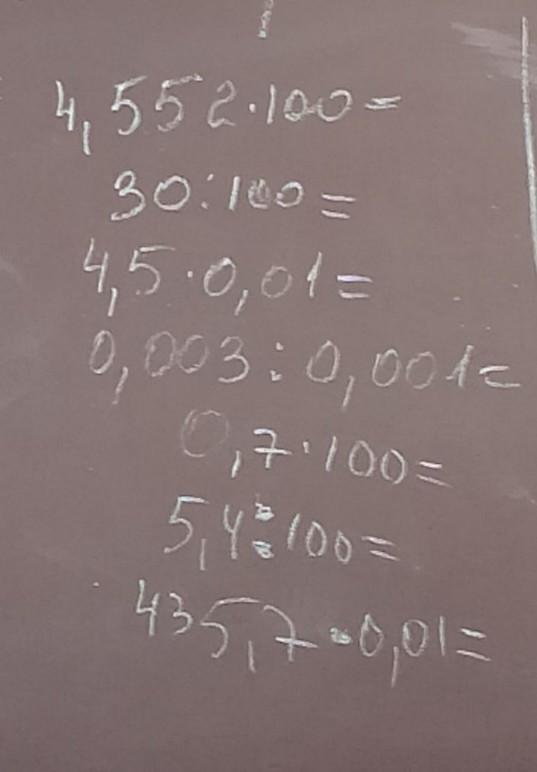 4,552·100=
30:100=
4,5·0,01=
0,003:0,001=
0,7·100=
5,4:100=
435,7·0,01=